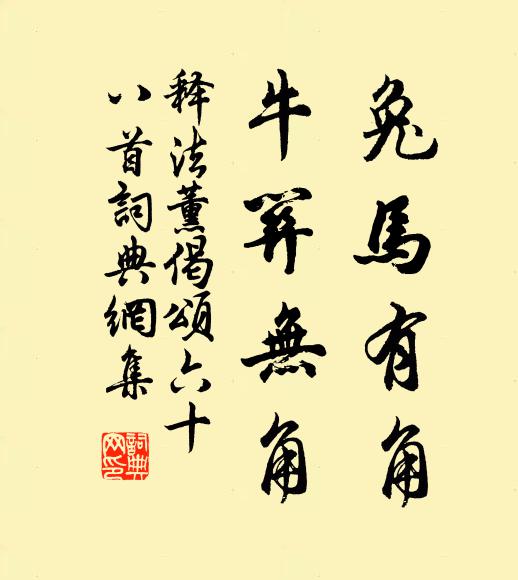 兔馬有角
牛羊無角
释法薰偈頌六十
八首詞典網集
詞典
网印